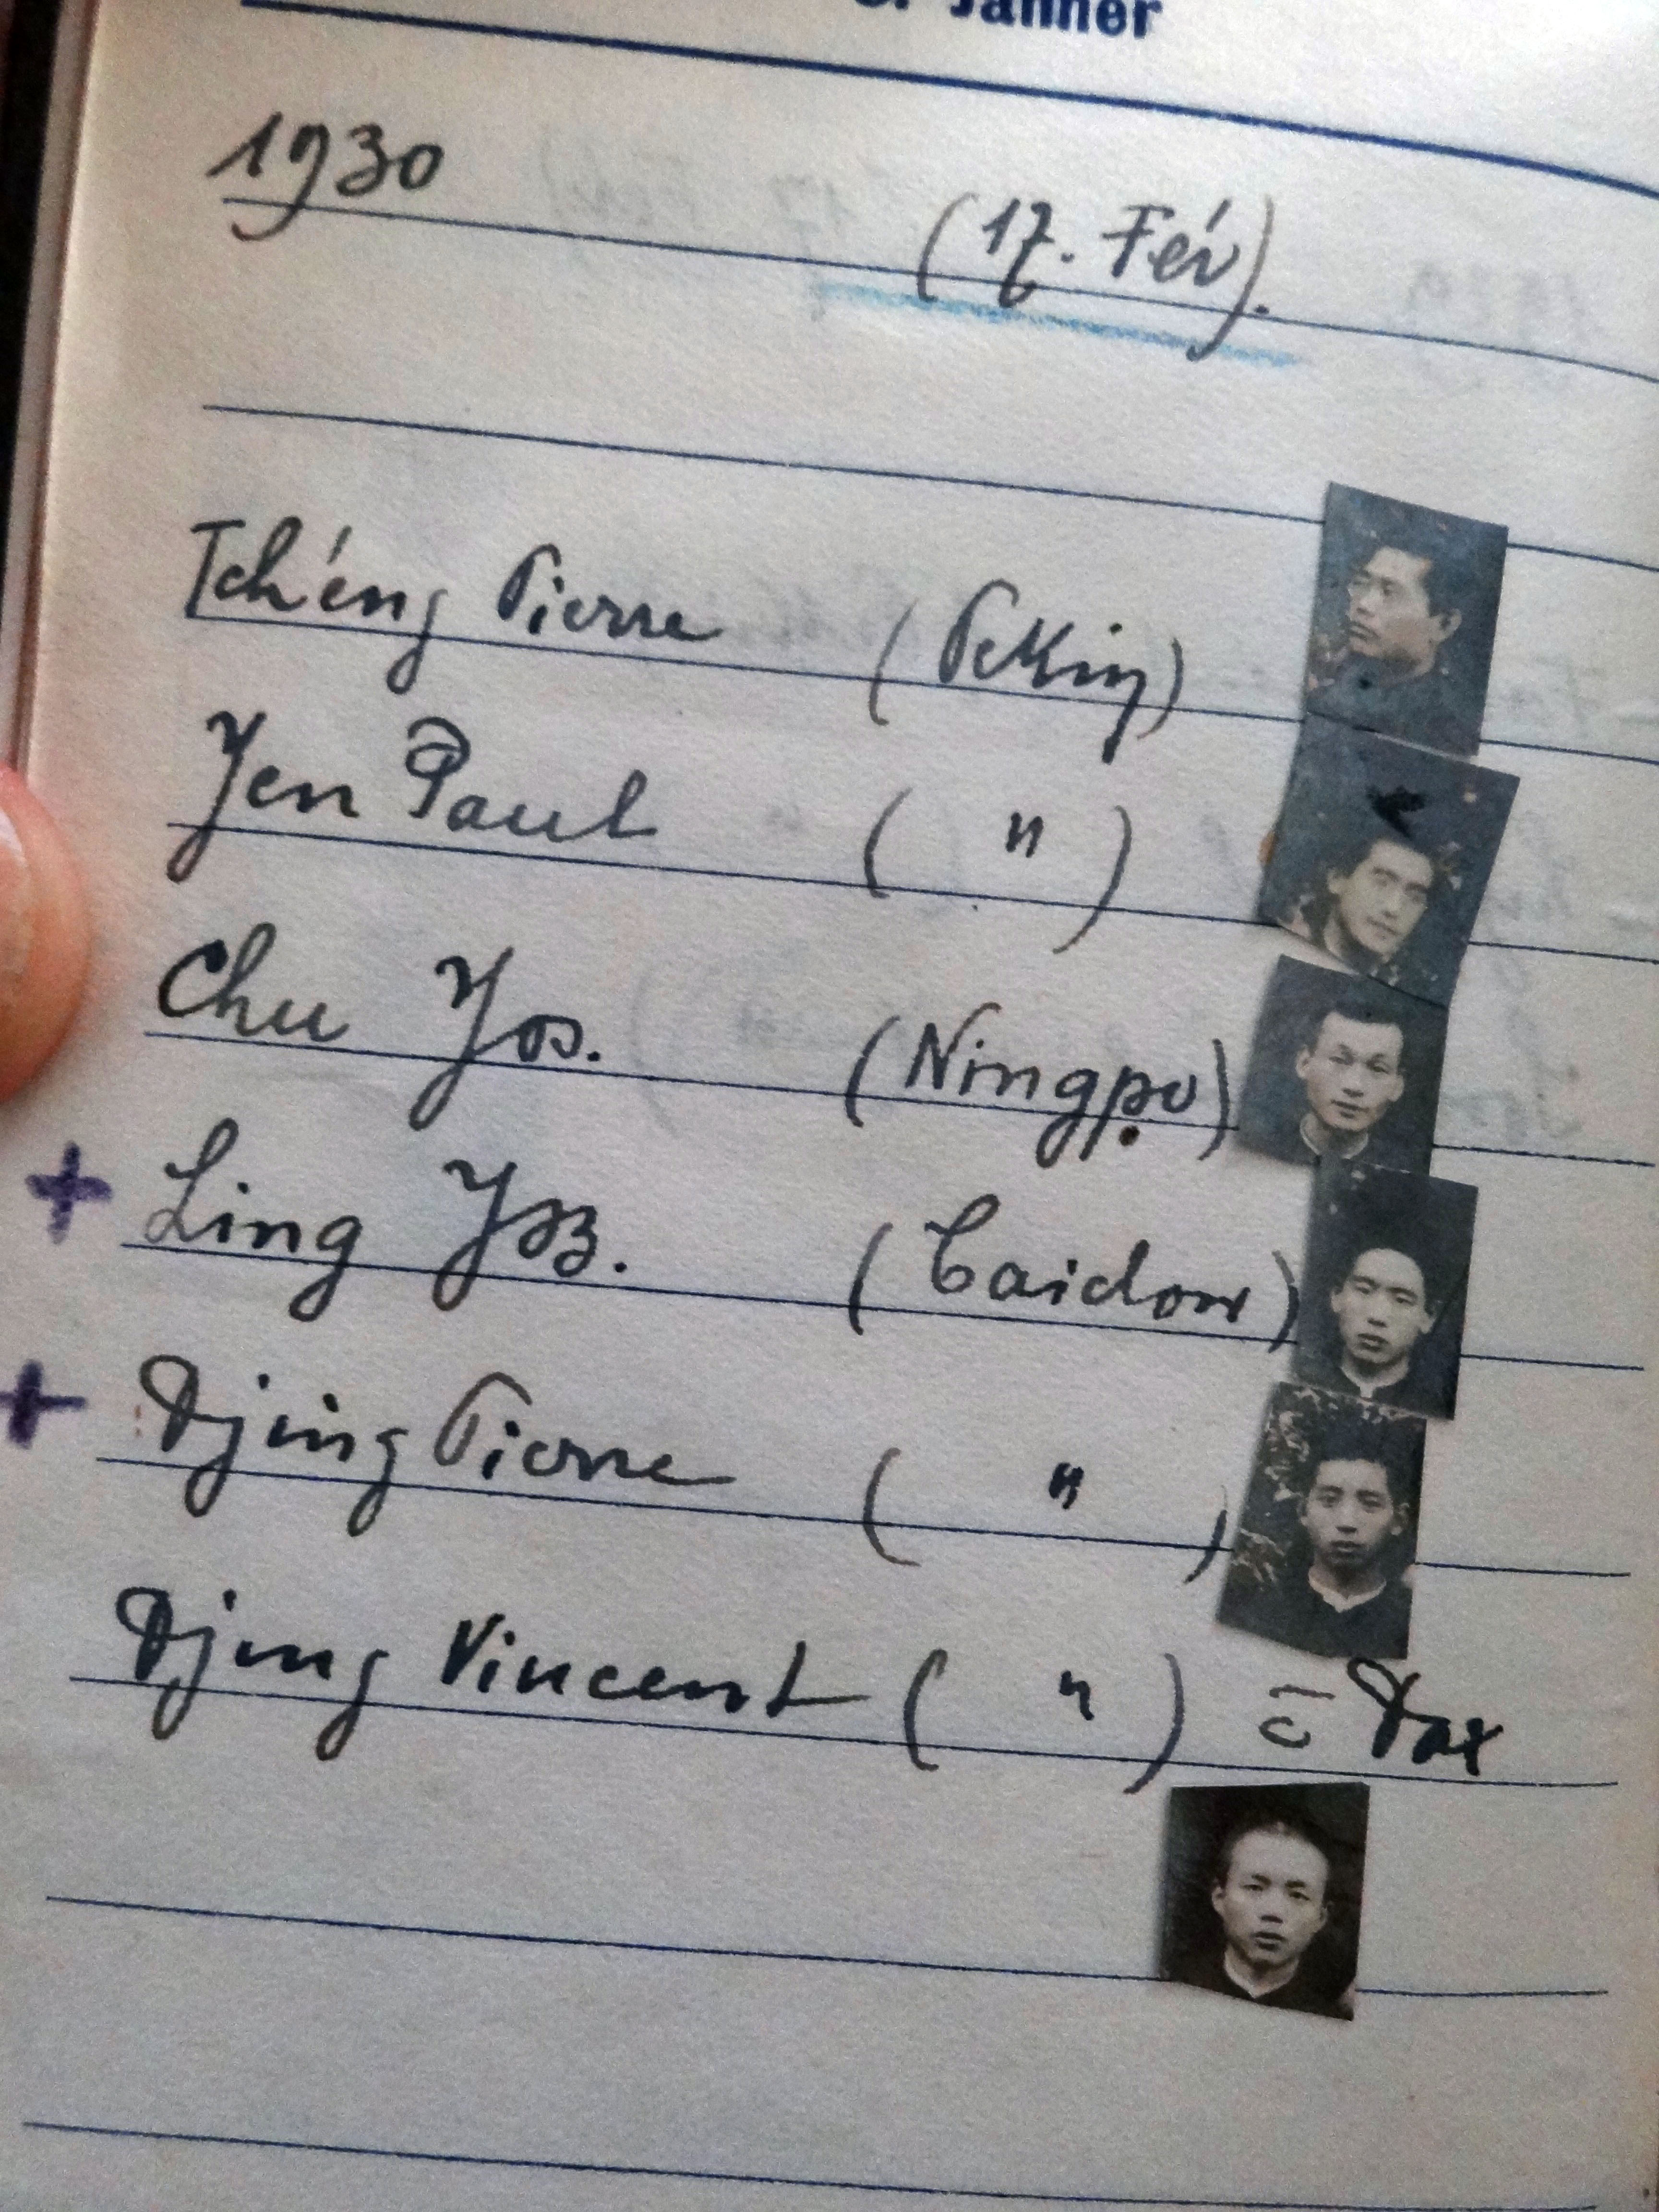 Jänner
1930
(17. Fév).
Tch'éng Pierre (Pekin)
Yen Paul ( " )
Chu Jos. (Ningpo)
+ Ling Jos. (Taichow)
+ Djing Pierre ( " )
Djing Vincent ( " ) = Dax